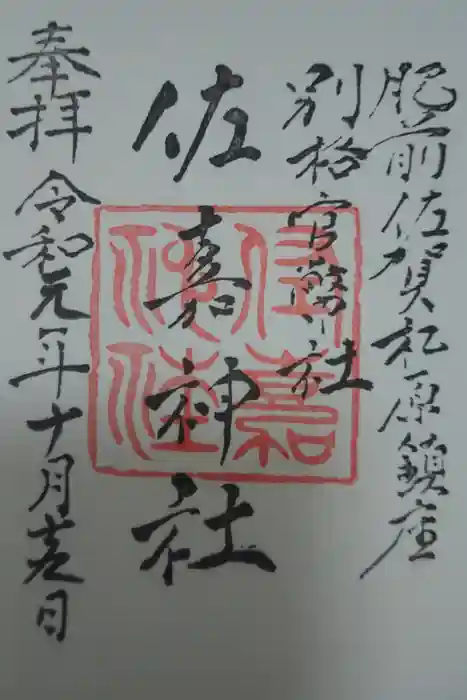 肥前佐賀松原鎮座
別格官幣社
佐嘉神社
奉拝 令和元年十月 日
佐嘉
神社